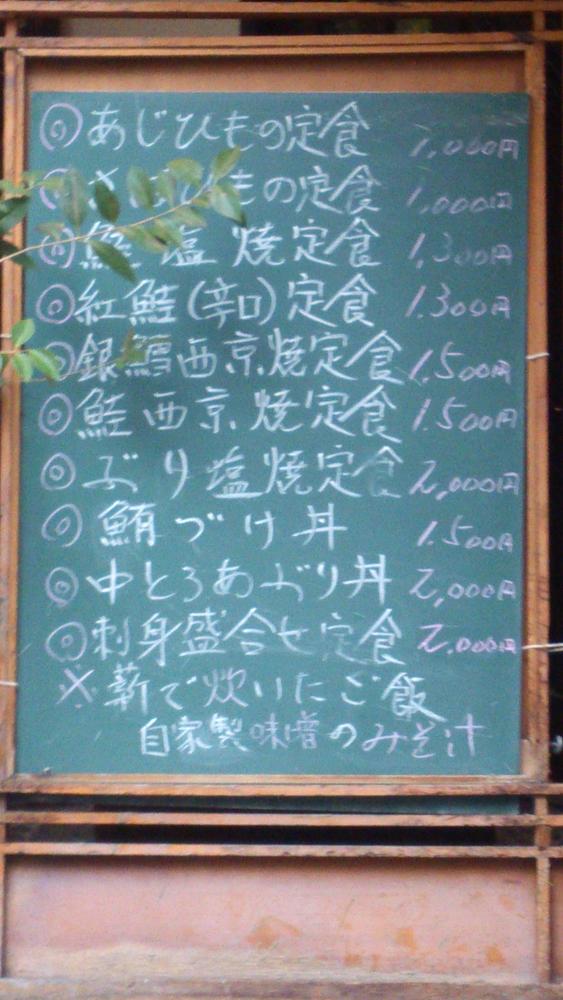 ◎あじひもの定食 1,000円
◎さばひもの定食 1,000円
◎鮭塩焼定食 1,300円
◎紅鮭(辛口)定食 1.300円
◎銀鱈西京焼定食 1.500円
◎鮭西京焼定食 1.500円
◎ぶり塩焼定食 2,000円
◎鮪づけ丼 1.500円
◎中とろあぶり丼 2,000円
◎刺身盛合せ定食 2.000円
※薪で炊いたご飯
自家製味噌のみそ汁